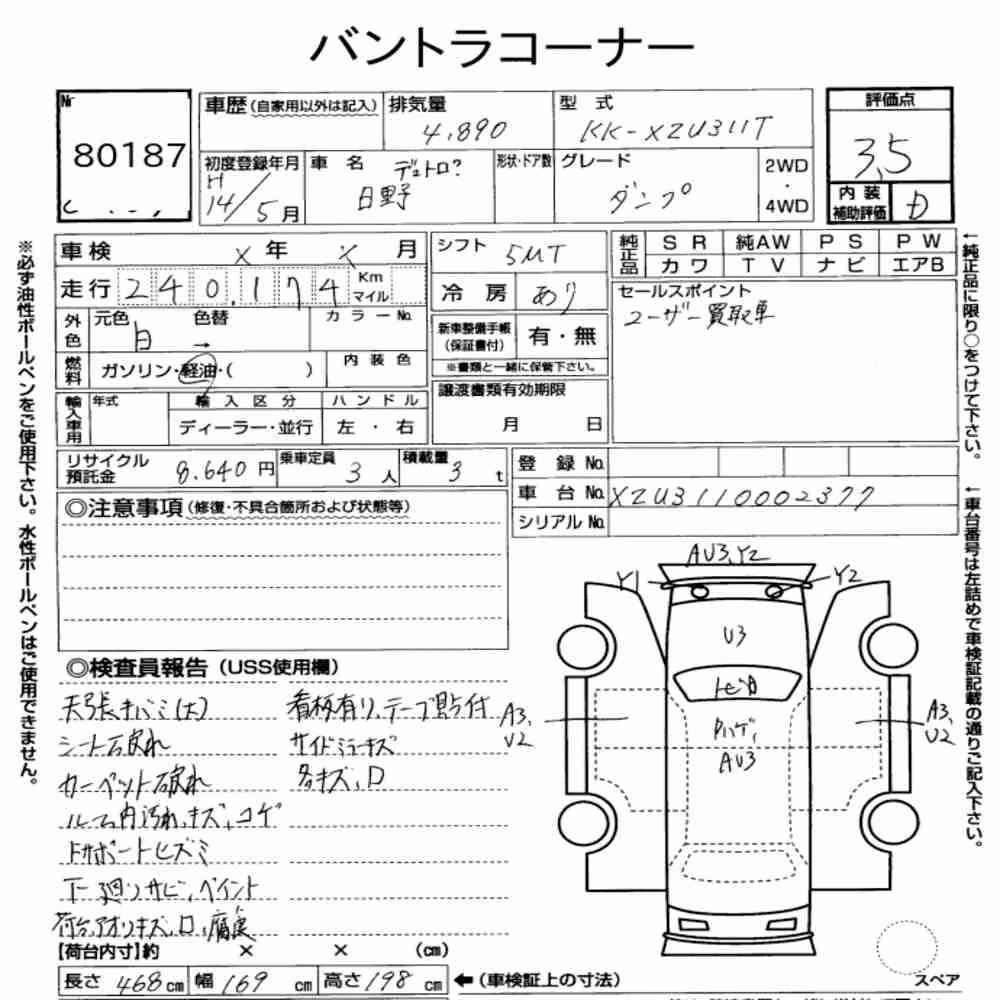 バントラコーナー
Nr
80187
車歴(自家用以外は記入)
排気量
4,890
型 式
KK-XZU311T
評価点
3.5
内装
補助評価
D
初度登録年月
H
14/5月
車 名
デュトロ?
日野
形状・ドア数
グレード
ダンプ
2WD
・
4WD
車検
X 年 X 月
シフト
5MT
純正品
SR 純AW PS PW
カワ TV ナビ エアB
走行
240,174
Km
マイル
冷房
あり
セールスポイント
ユーザー買取車
外色
元色
白
色替
→
カラーNo.
新車整備手帳
(保証書付)
有・無
※書類と一緒に保管下さい。
燃料
ガソリン・軽油・( )
内装色
輸入車用
年式
輸入区分
ディーラー・並行
ハンドル
左・右
譲渡書類有効期限
月 日
リサイクル
預託金
8,640円
乗車定員
3人
積載量
3t
登録No.
車台No.
XZU3110002377
シリアルNo.
◎注意事項(修復・不具合箇所および状態等)
◎検査員報告(USS使用欄)
天張キバミ(大)
シート破れ
カーペット破れ
ルーム内汚れ,キズ,コゲ
下廻りサビ,ペイント
荷台,アオリキズ,凹,腐食
看板有り,テープ貼付
サイドミラーキズ
多キズ,凹
AU3,Y2
Y1
Y2
U3
トビ凹
Pハゲ,
AU3
A3,
U2
A3,
U2
スペア
【荷台内寸】約 × × (cm)
長さ 468cm
幅 169cm
高さ 198cm
←(車検証上の寸法)
※必ず油性ボールペンをご使用下さい。水性ボールペンはご使用できません。
←純正品に限り○をつけて下さい。
←車台番号は左詰めで車検証記載の通りご記入下さい。